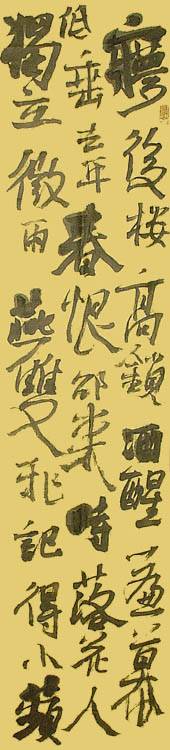 夢後楼高鎖酒醒簾幕
低垂去年春恨卻來時落花人
獨立微雨燕雙飛記得小蘋